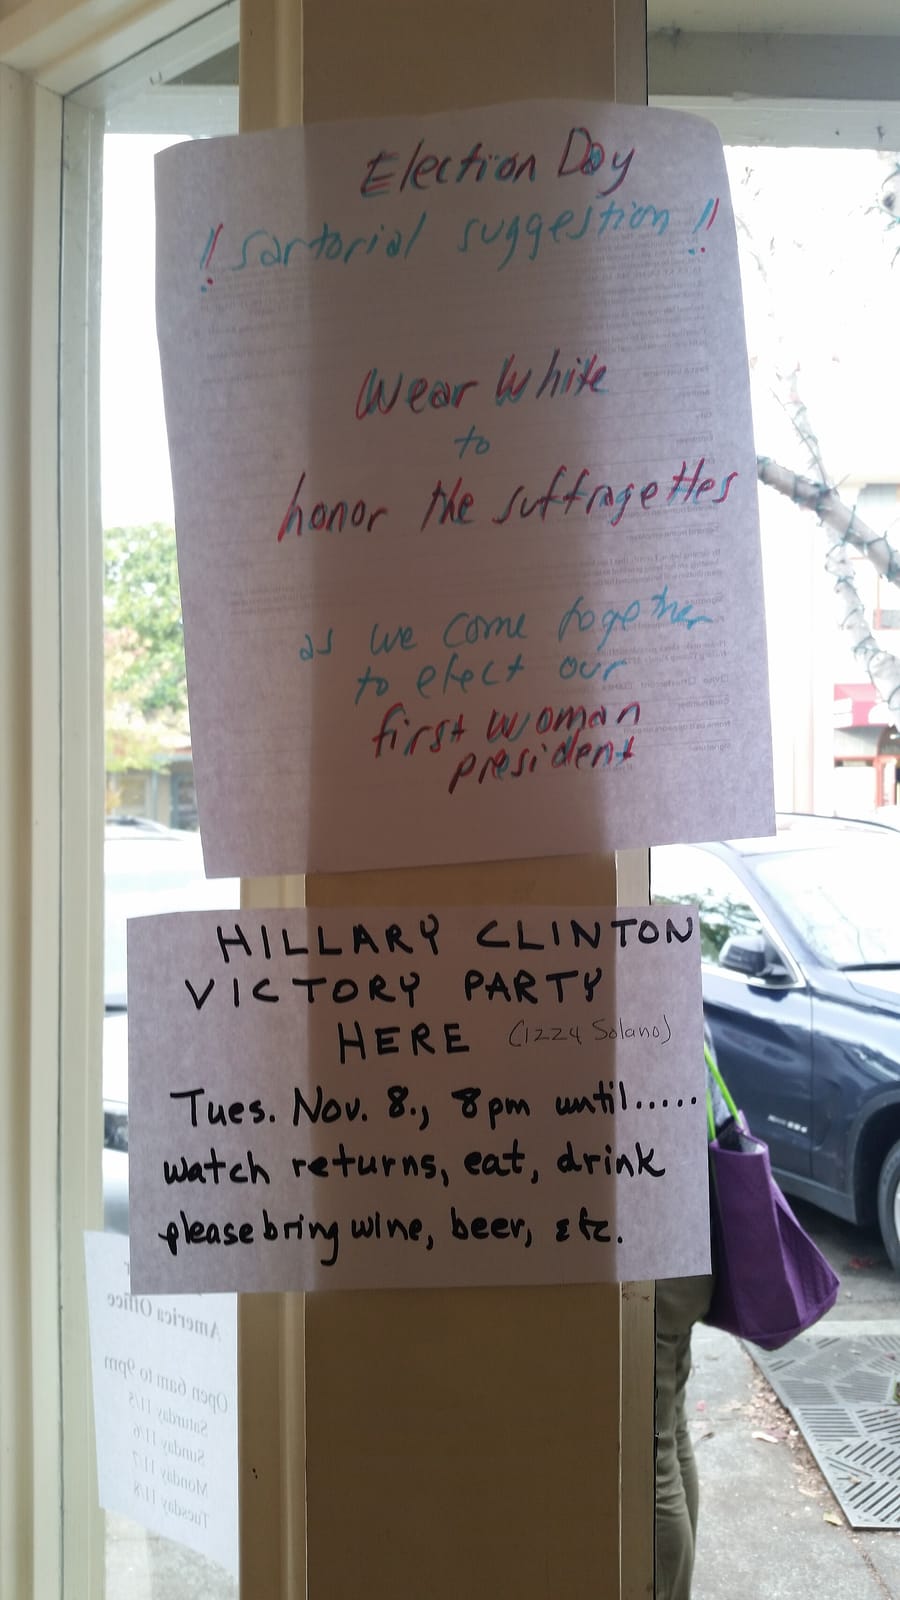 Election Day
!! sartorial suggestion !!
Wear White
to
honor the suffragettes
as we come together
to elect our
first woman
president
HILLARY CLINTON
VICTORY PARTY
HERE (1224 Solano)
Tues. Nov. 8., 8pm until.....
watch returns, eat, drink
please bring wine, beer, etc.
America Office
Open 6am to 9pm
Saturday 11/5
Sunday 11/6
Monday 11/7
Tuesday 11/8